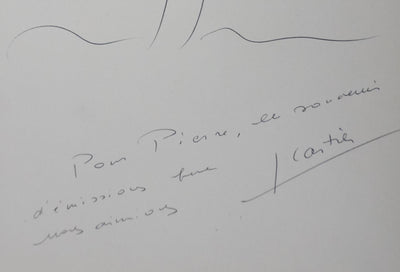 Pour Pierre, en souvenir
d'émissions que
nous aimions JCartier